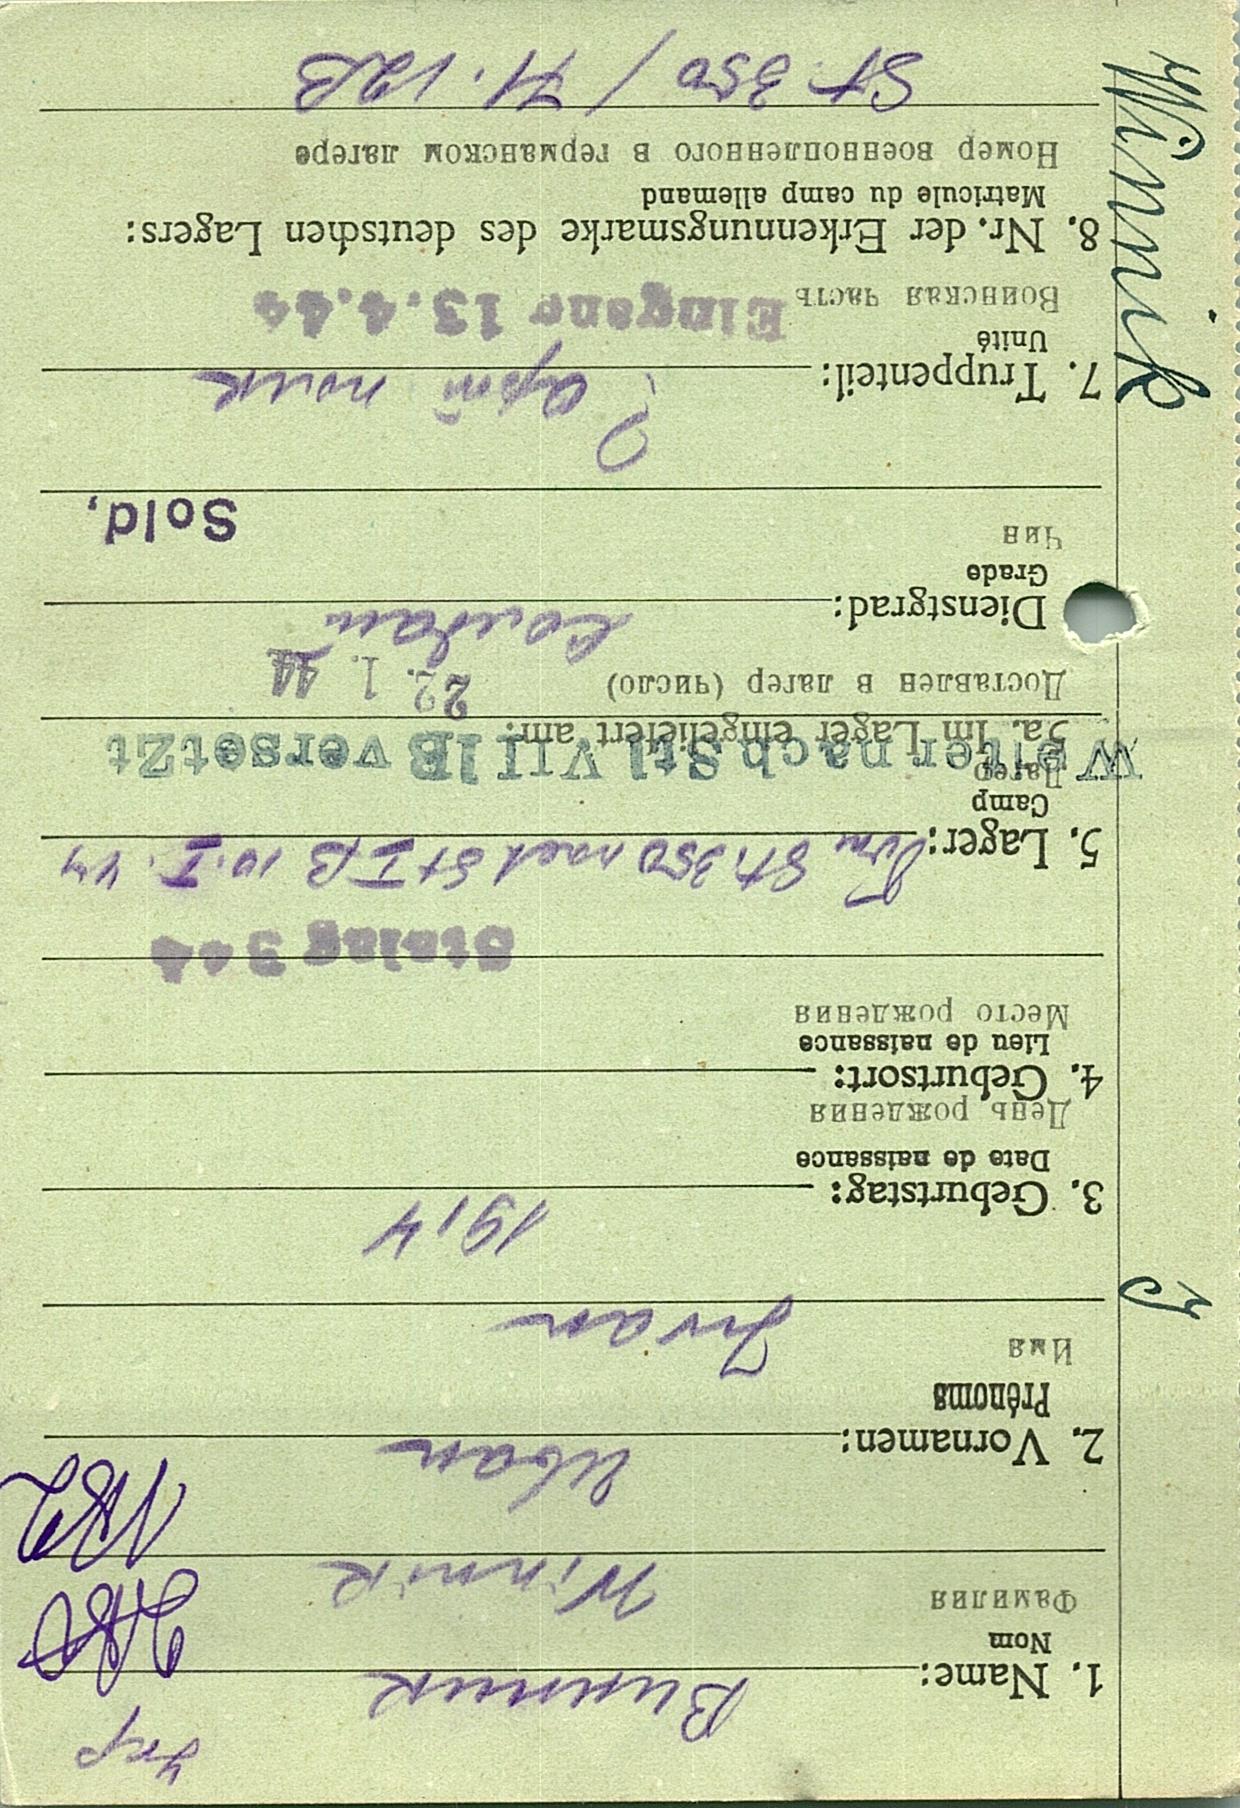 Укр
1. Name: Винник
Nom
Фамилия
Winnik
Иван
2. Vornamen:
Prénoms
Имя
Iwan
J
1914
3. Geburtstag:
Date de naissance
День рождения
4. Geburtsort:
Lieu de naissance
Место рождения
Stalag 344
Von St. 350 nach St I B 10. I. 44
5. Lager:
Camp
Лагерь
Weiter nach Stl VIII B versetzt
5a. Im Lager eingeliefert am:
Доставлен в лагер (число)
22. 1. 44
солдат
Dienstgrad:
Grade
Чин
Sold,
? арт полк
7. Truppenteil:
Unité
Воинская часть
Eingang 13.4.44
8. Nr. der Erkennungsmarke des deutschen Lagers:
Matricule du camp allemand
Номер военнопленного в германском лагере
Winnik